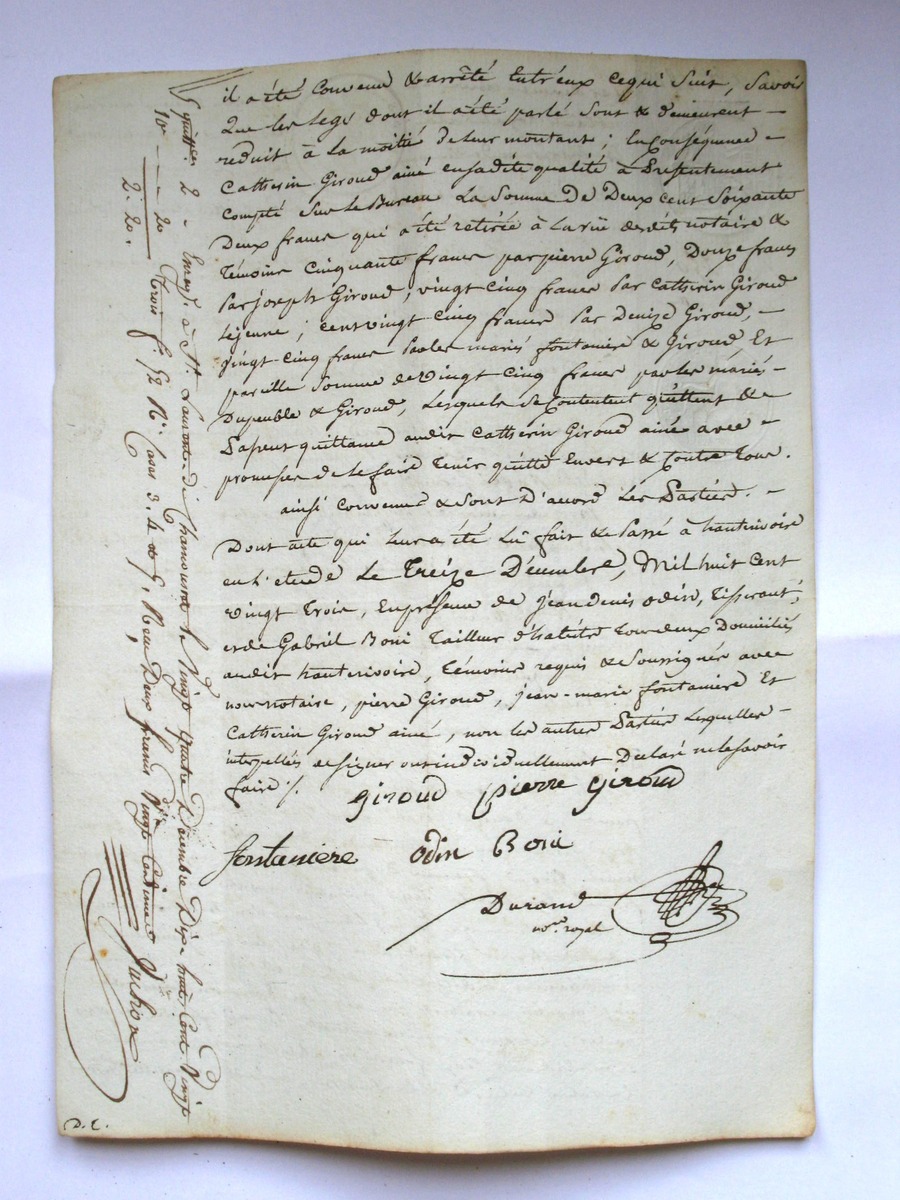 il a été Convenu & arrêté Entr'eux ce qui Suit, Savoir
Que les legs dont il a été parlé Sont & demeurent —
reduit à La moitié de Leur montant ; En Conséquence —
Catherin Giroud ainé en sa dite qualité à Présentement
Compté Sur le Bureau La Somme De Deux cent Soixante
Deux francs qui a été retirée à La vüe desdits notaire &
Témoins Cinquante francs par pierre Giroud, Douze francs
Par joseph Giroud, vingt Cinq francs Par Catherin Giroud
Lejeune ; cent vingt Cinq francs Par Denize Giroud, —
vingt Cinq francs Par les mariés fontaniere & Giroud Et
pareille Somme de vingt Cinq francs par les mariés —
Dupeuble & Giroud, Lesquels Se Contentent quittent &
Passent quittance audit Catherin Giroud ainé avec —
promesses de le faire Tenir quitte Envers & Contre Tous.
ainsi Convenus & Sont D'accord Les Parties. —
Dont acte qui Leur a été Lu fait & Passé à hauterivoire
en L'etude Le Treize Décembre, Mil huit Cent
vingt Trois, En présence de jean Denis Odin, Tisserant,
et de Gabriel Boni Tailleur d'habits Tous deux Domiciliés
audit hauterivoire, Témoins requis & Soussignés avec
nous notaire, pierre Giroud, jean-marie fontaniere Et
Catherin Giroud ainé, non les autres Parties Lesquelles —
interpellés de Signer ont individuellement Declaré ne le Savoir
faire /.
Giroud pierre Giroud
fontaniere Odin Boni
Durand
no.re royal
2 - Enreg. à St. Laurent-de Chamousset le vingt quatre Décembre Dix huit Cent Vingt
10 — - - 20 Trois f. 52 R.o Cases 3. 4 & 5. Reçu Deux francs Vingt Centimes
2. 20.
D.C.